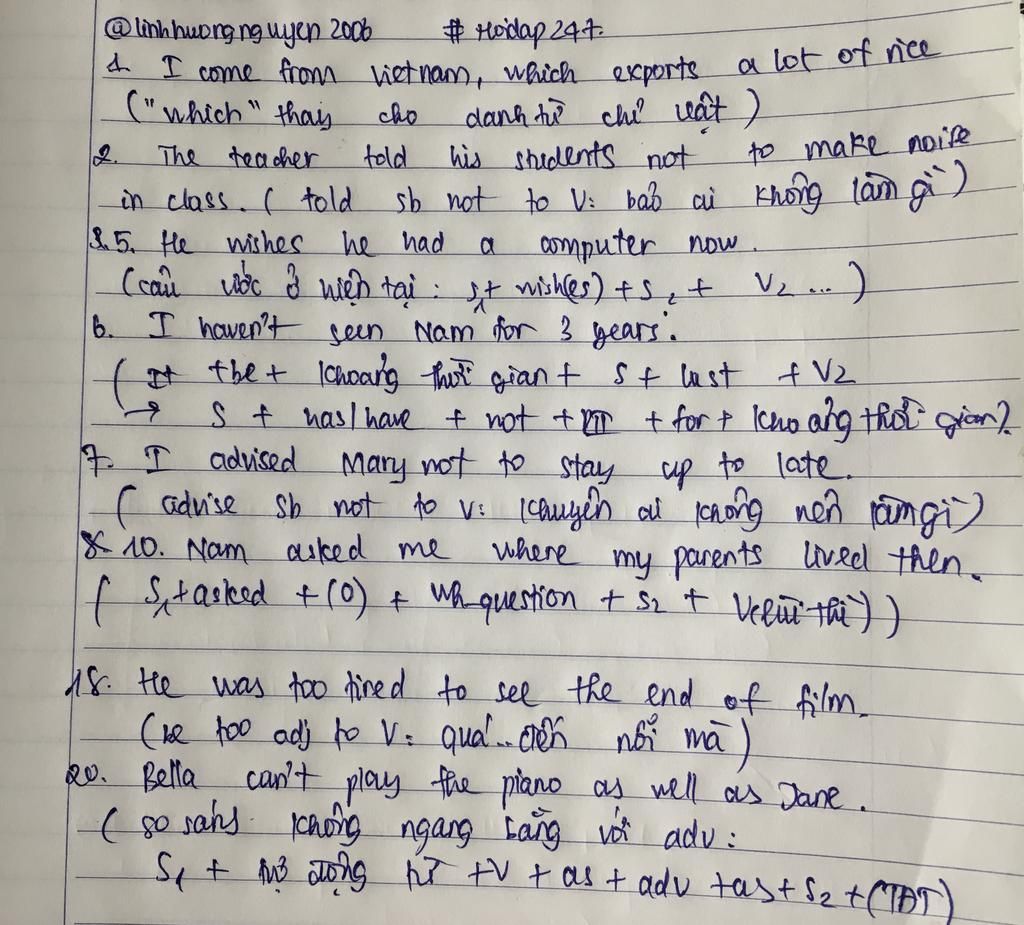 @linhhuongnguyen2006 # Hoidap247.
1. I come from vietnam, which exports a lot of rice
("which" thay cho danh từ chỉ vật)
2. The teacher told his students not to make noise
in class. ( told sb not to V: bảo ai không làm gì)
5. He wishes he had a computer now.
(câu ước ở hiện tại: S1 + wish(es) + S2 + V2 ... )
6. I haven't seen Nam for 3 years.
( It + be + khoảng thời gian + S + last + V2
→ S + has/have + not + PII + for + khoảng thời gian)
7. I advised Mary not to stay up to late.
( advise sb not to V: khuyên ai không nên làm gì)
10. Nam asked me where my parents lived then.
( S1 + asked + (O) + Wh_question + S2 + V(lùi thì))
18. He was too tired to see the end of film.
(be too adj to V: quá...đến nỗi mà)
20. Bella can't play the piano as well as Jane.
( so sánh không ngang bằng với adv:
S1 + trợ động từ + V + as + adv + as + S2 + (TĐT)